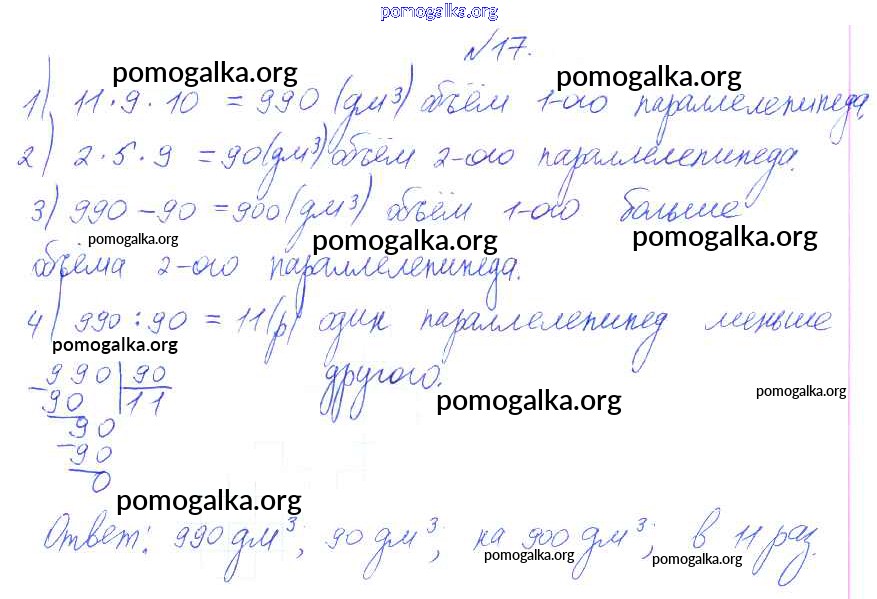 pomogalka.org
№17.
pomogalka.org pomogalka.org
1) 11·9·10 = 990 (дм³) объём 1-ого параллелепипеда,
pomogalka.org pomogalka.org
2) 2·5·9 = 90(дм³) объём 2-ого параллелепипеда.
3) 990 - 90 = 900(дм³) объём 1-ого больше
pomogalka.org pomogalka.org pomogalka.org
объёма 2-ого параллелепипеда.
4) 990 : 90 = 11(р) один параллелепипед меньше
pomogalka.org
другого.
990 | 90
- 90 | 11
pomogalka.org pomogalka.org
90
- 90
0
pomogalka.org
Ответ: 990 дм³; 90 дм³; на 900 дм³; в 11 раз.
pomogalka.org pomogalka.org